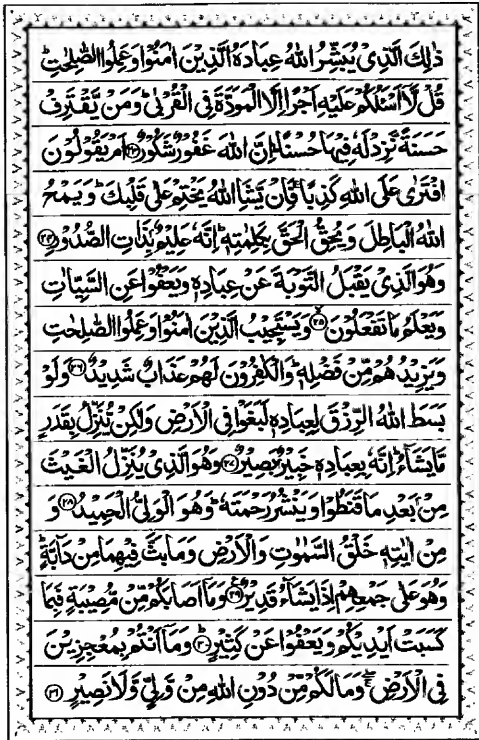 ذٰلِكَ الَّذِیْ یُبَشِّرُ اللّٰهُ عِبَادَهُ الَّذِیْنَ اٰمَنُوْا وَعَمِلُوا الصّٰلِحٰتِ ؕ
قُلْ لَّاۤ اَسْئَلُكُمْ عَلَیْهِ اَجْرًا اِلَّا الْمَوَدَّةَ فِی الْقُرْبٰی ؕ وَمَنْ یَّقْتَرِفْ
حَسَنَةً نَّزِدْ لَهٗ فِیْهَا حُسْنًا ؕ اِنَّ اللّٰهَ غَفُوْرٌ شَكُوْرٌ ﴿۲۳﴾ اَمْ یَقُوْلُوْنَ
افْتَرٰی عَلَی اللّٰهِ كَذِبًا ۚ فَاِنْ یَّشَاِ اللّٰهُ یَخْتِمْ عَلٰی قَلْبِكَ ؕ وَیَمْحُ
اللّٰهُ الْبَاطِلَ وَیُحِقُّ الْحَقَّ بِكَلِمٰتِهٖ ؕ اِنَّهٗ عَلِیْمٌۢ بِذَاتِ الصُّدُوْرِ ﴿۲۴﴾
وَهُوَ الَّذِیْ یَقْبَلُ التَّوْبَةَ عَنْ عِبَادِهٖ وَیَعْفُوْا عَنِ السَّیِّاٰتِ
وَیَعْلَمُ مَا تَفْعَلُوْنَ ﴿۲۵﴾ وَیَسْتَجِیْبُ الَّذِیْنَ اٰمَنُوْا وَعَمِلُوا الصّٰلِحٰتِ
وَیَزِیْدُهُمْ مِّنْ فَضْلِهٖ ؕ وَالْكٰفِرُوْنَ لَهُمْ عَذَابٌ شَدِیْدٌ ﴿۲۶﴾ وَلَوْ
بَسَطَ اللّٰهُ الرِّزْقَ لِعِبَادِهٖ لَبَغَوْا فِی الْاَرْضِ وَلٰكِنْ یُّنَزِّلُ بِقَدَرٍ
مَّا یَشَآءُ ؕ اِنَّهٗ بِعِبَادِهٖ خَبِیْرٌۢ بَصِیْرٌ ﴿۲۷﴾ وَهُوَ الَّذِیْ یُنَزِّلُ الْغَیْثَ
مِنْۢ بَعْدِ مَا قَنَطُوْا وَیَنْشُرُ رَحْمَتَهٗ ؕ وَهُوَ الْوَلِیُّ الْحَمِیْدُ ﴿۲۸﴾ وَ
مِنْ اٰیٰتِهٖ خَلْقُ السَّمٰوٰتِ وَالْاَرْضِ وَمَا بَثَّ فِیْهِمَا مِنْ دَآبَّةٍ ؕ
وَهُوَ عَلٰی جَمْعِهِمْ اِذَا یَشَآءُ قَدِیْرٌ ﴿۲۹﴾ وَمَاۤ اَصَابَكُمْ مِّنْ مُّصِیْبَةٍ فَبِمَا
كَسَبَتْ اَیْدِیْكُمْ وَیَعْفُوْا عَنْ كَثِیْرٍ ﴿۳۰﴾ وَمَاۤ اَنْتُمْ بِمُعْجِزِیْنَ
فِی الْاَرْضِ ۖۚ وَمَا لَكُمْ مِّنْ دُوْنِ اللّٰهِ مِنْ وَّلِیٍّ وَّلَا نَصِیْرٍ ﴿۳۱﴾